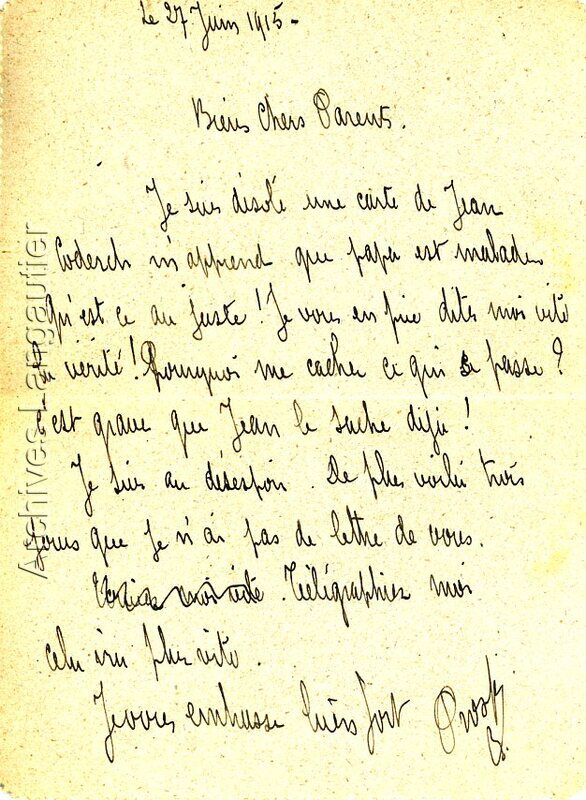 Le 27 Juin 1915 -
Biens Chers Parents.
Je suis désolé une carte de Jean
Coderch m'apprend que papa est malade
qu'est ce au juste ! Je vous en prie dites moi vite
la vérité ! Pourquoi me cacher ce qui se passe ?
C'est grave que Jean le sache déjà !
Je suis au désespoir. De plus voilà trois
jours que je n'ai pas de lettre de vous.
Télégraphiez moi
cela ira plus vite.
Je vous embrasse bien fort
Archives Langautier